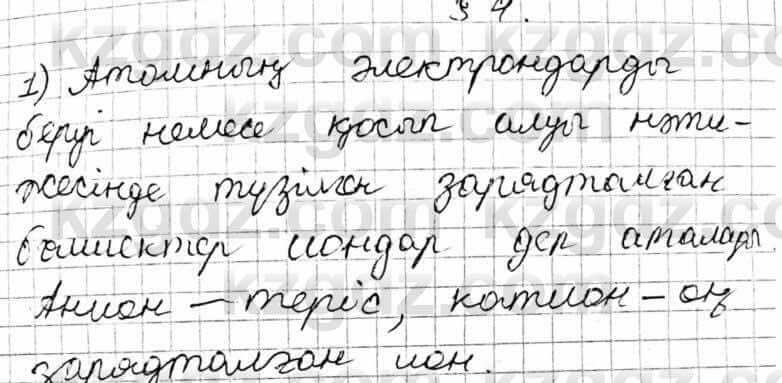 § 4.
1) Атомның электрондарды
беруі немесе қосып алуы нәти-
жесінде түзілген зарядталған
бөлшектер иондар деп аталады.
Анион – теріс, катион – оң
зарядталған ион.